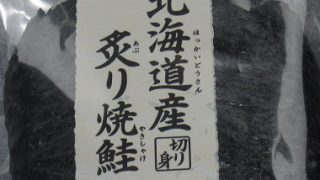 北海道産
ほっかいどうさん
切り身
炙り焼鮭
あぶ
やきしゃけ